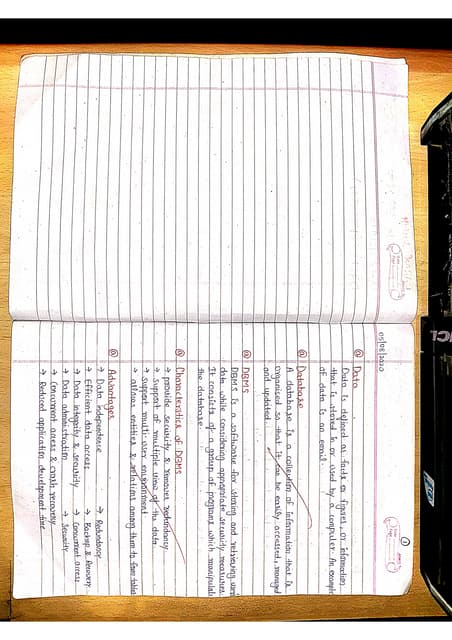 02/08/2020
①
@ Data
Data is defined as facts or figures, or information
that is stored in or used by a computer. An example
of data is an email.
@ Database
A database is a collection of information that is
organised so that it can be easily accessed, managed
and updated
@ DBMS
DBMS is a software for storing and retrieving users
data while considering appropriate security measures.
It consists of a group of programs which manipulate
the database.
@ Characteristics of DBMS
→ provide security & remove redundancy
→ support of multiple views of the data
→ support multi-user environment
→ allows entities & relations among them to form tables
@ Advantages
→ Data independence → Redundancy
→ Efficient data access → Backup & Recovery
→ Data integrity & security → Concurrent access
→ Data administration → Security
→ Concurrent access & crash recovery
→ Reduced application development time